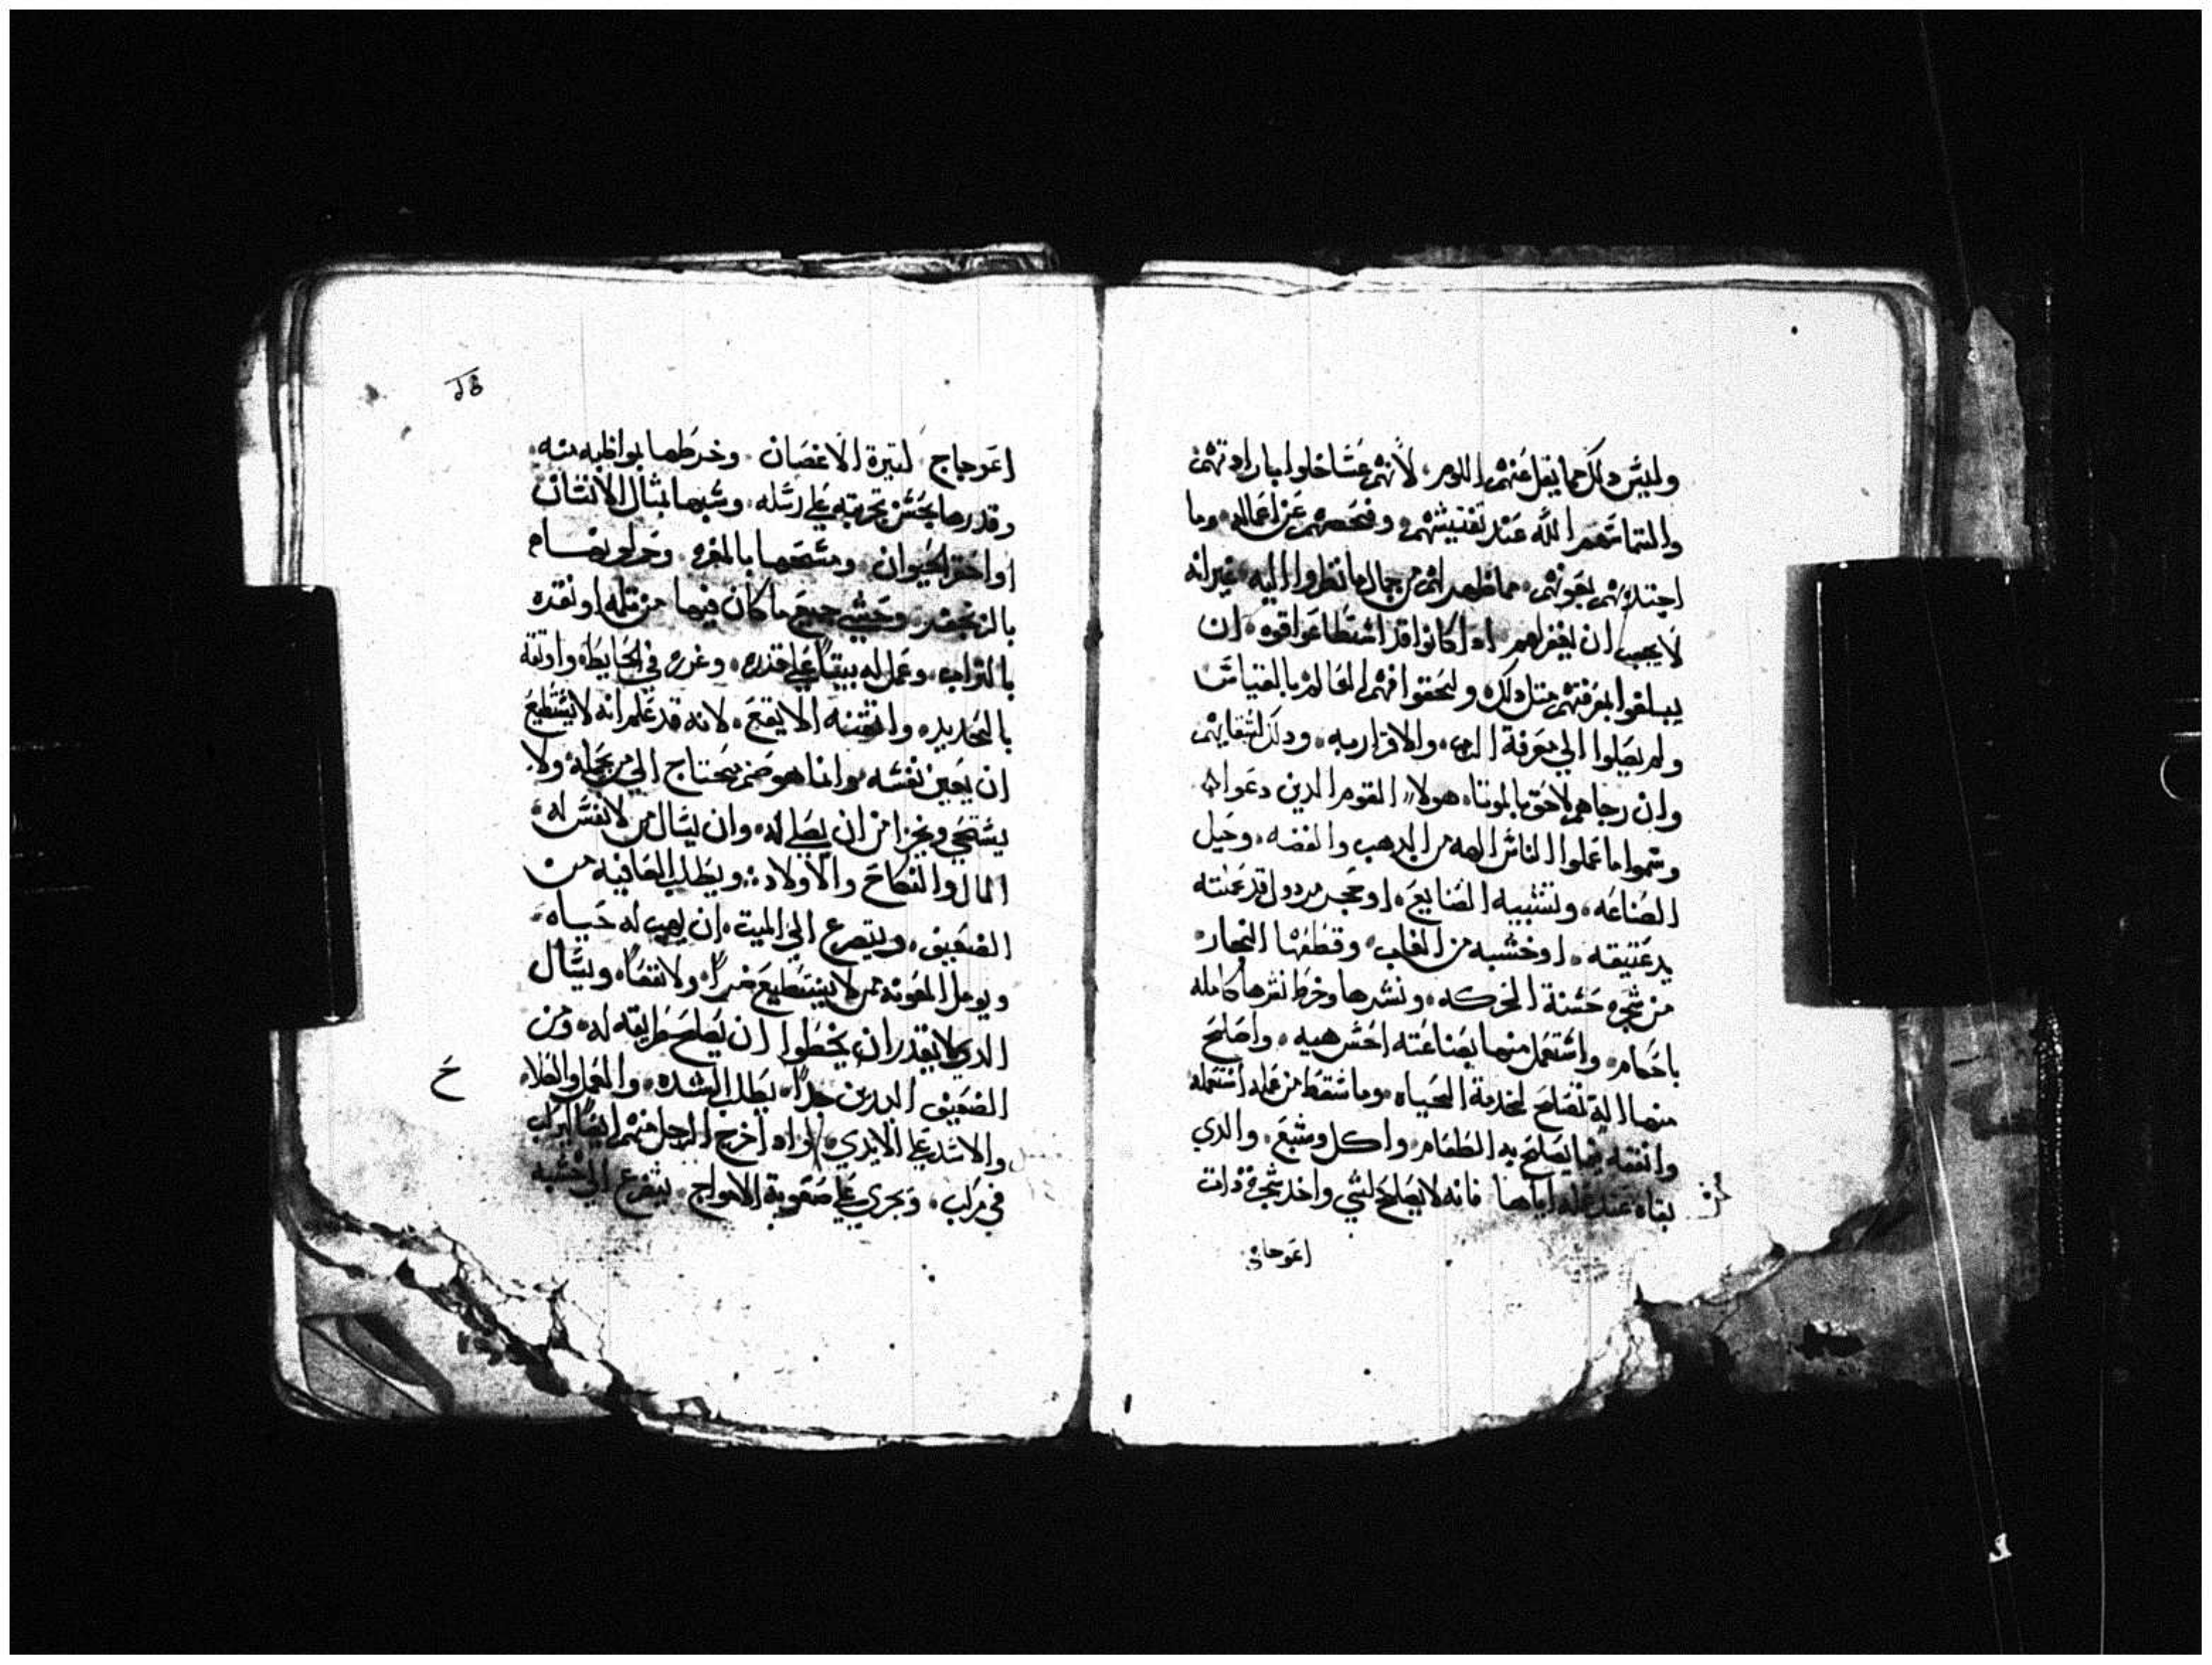 وليس دلك مما يقل عنهم اللوم، لانهم عسا ضلوا بارادتهم
والتماسهم الله عند تفتيشهم، وفحصهم عن اعماله، وما
اجتدبهم لغوتهم، مما ظهر لهم من جمال ما نظروا اليه، غير انه
لا يجب ان يغفر لهم، اد كانوا قد استطاعوا قوه، ان
يبلغوا بمعرفتهم متل دلك، وليحقوا فهم العالم بالقياس
ولم يصلوا الي معرفة الرب، والاقرار به، ودلك لشقايهم
وان رجاهم لاحق بالموتا، هولا القوم الدين دعوا
وسموا ما عملوا الناس الهه من الدهب والفضه، وحيل
الصناعه، وتشبيه الصنايع، او حجر مردول قد عملته
يد عتيقه، او خشبه من الغاب، وقطعها النجار
من شجره حسنة الحركه، ونشرها وخرط قشرها كامله
باحكام، واستعمل منها بصناعته احسن هيه، واصلح
منها الة تصلح لخدمة الحياه، وما سقط من عمله استعمله
وانفقه فيما يصلح به الطعام، واكل وشبع، والدي
بقاه عند عمله اياها فانه لا يصلح لشي واخد شجرة دات
اعوجاج
اعوجاج لتيرة الاغصان، وخرطها بمواظبه منه،
وقدرها بحسن تجربته علي رسله، وشبهها بتال الانسان
او احقر الحيوان، ومسحها بالمغره وحمر لونها
بالزنجفر، وحشي جميع ما كان فيها من تلمه او نقره
بالتراب، وعمل له بيتا علي قدره، وغرزه في الحايط، واوتقه
بالحديد، واتقنه الا يقع، لانه قد علم انه لا يستطيع
ان يعين نفسه، وانما هو صنم يحتاج الي من يحمله، ولا
يستحي ويخزا من ان يصلي له، وان يسال من لا نفس له،
المال والنكاح والاولاد، ويطلب العافيه من
الضعيف، ويتضرع الي الميت، ان يهب له حياه،
ويومل المعونه ممن لا يستطيع ضرا، ولا نفعا، ويسال
الدي لا يقدر ان يخطوا ان يصلح طريقه له، ومن
الضعيف اليدين جدا، يطلب الشده، والعمل
والاشد علي الايدي، واد اخرج الرجل منهم ايضا ليركب
في مركب، ويجري علي صعوبة الامواج، يتضرع الي خشبه
ح